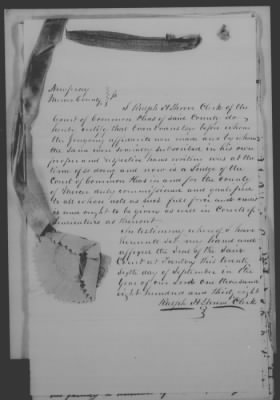 New Jersey
Mercer County } ss
I Ralph H Shreve Clerk of the
Court of Common Pleas of said County do
hereby certify that Evan Evans Esqr before whom
the foregoing affidavits were made and by whom
the same were severally subscribed in his own
proper and respective hand writing was at the
time of so doing and now is a Judge of the
Court of Common Pleas in and for the County
of Mercer duly commissioned and qualified
to all whose acts as such full force and credit
is and ought to be given as well in Courts of
Judicature as thereout
In testimony whereof I have
hereunto set my hand and
affixed the Seal of the said
Court at Trenton this twenty
sixth day of September in the
year of our Lord one thousand
eight hundred and thirty eight
Ralph H Shreve Clerk